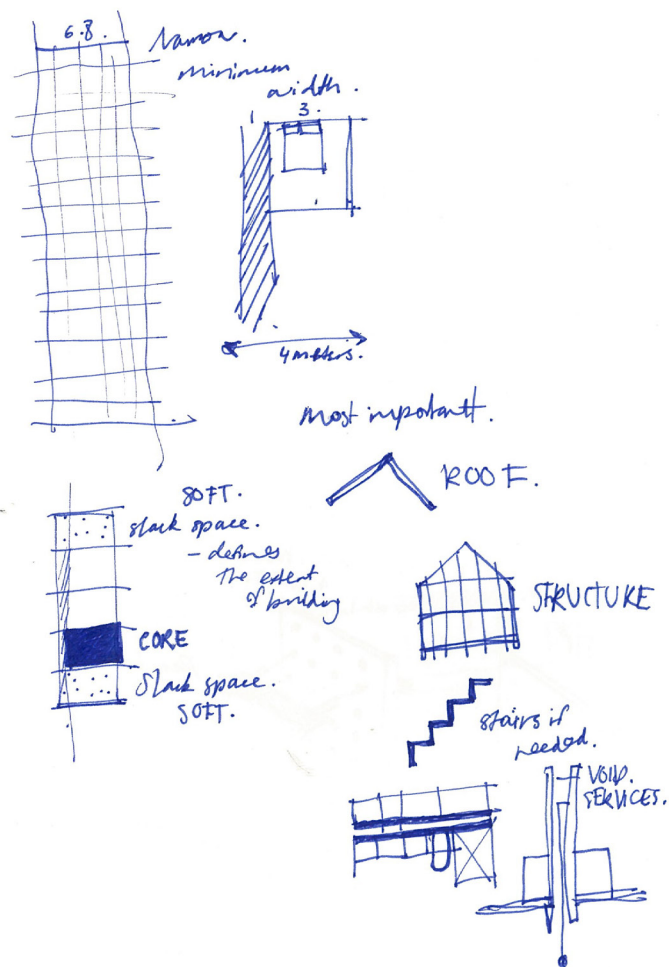 6.8.
Narrow.
minimum
width.
1 3.
4 meters.
most important.
ROOF.
SOFT.
slack space.
- defines
the extent
of building
STRUCTURE
CORE
Slack space.
SOFT.
stairs if
needed.
VOID.
SERVICES.